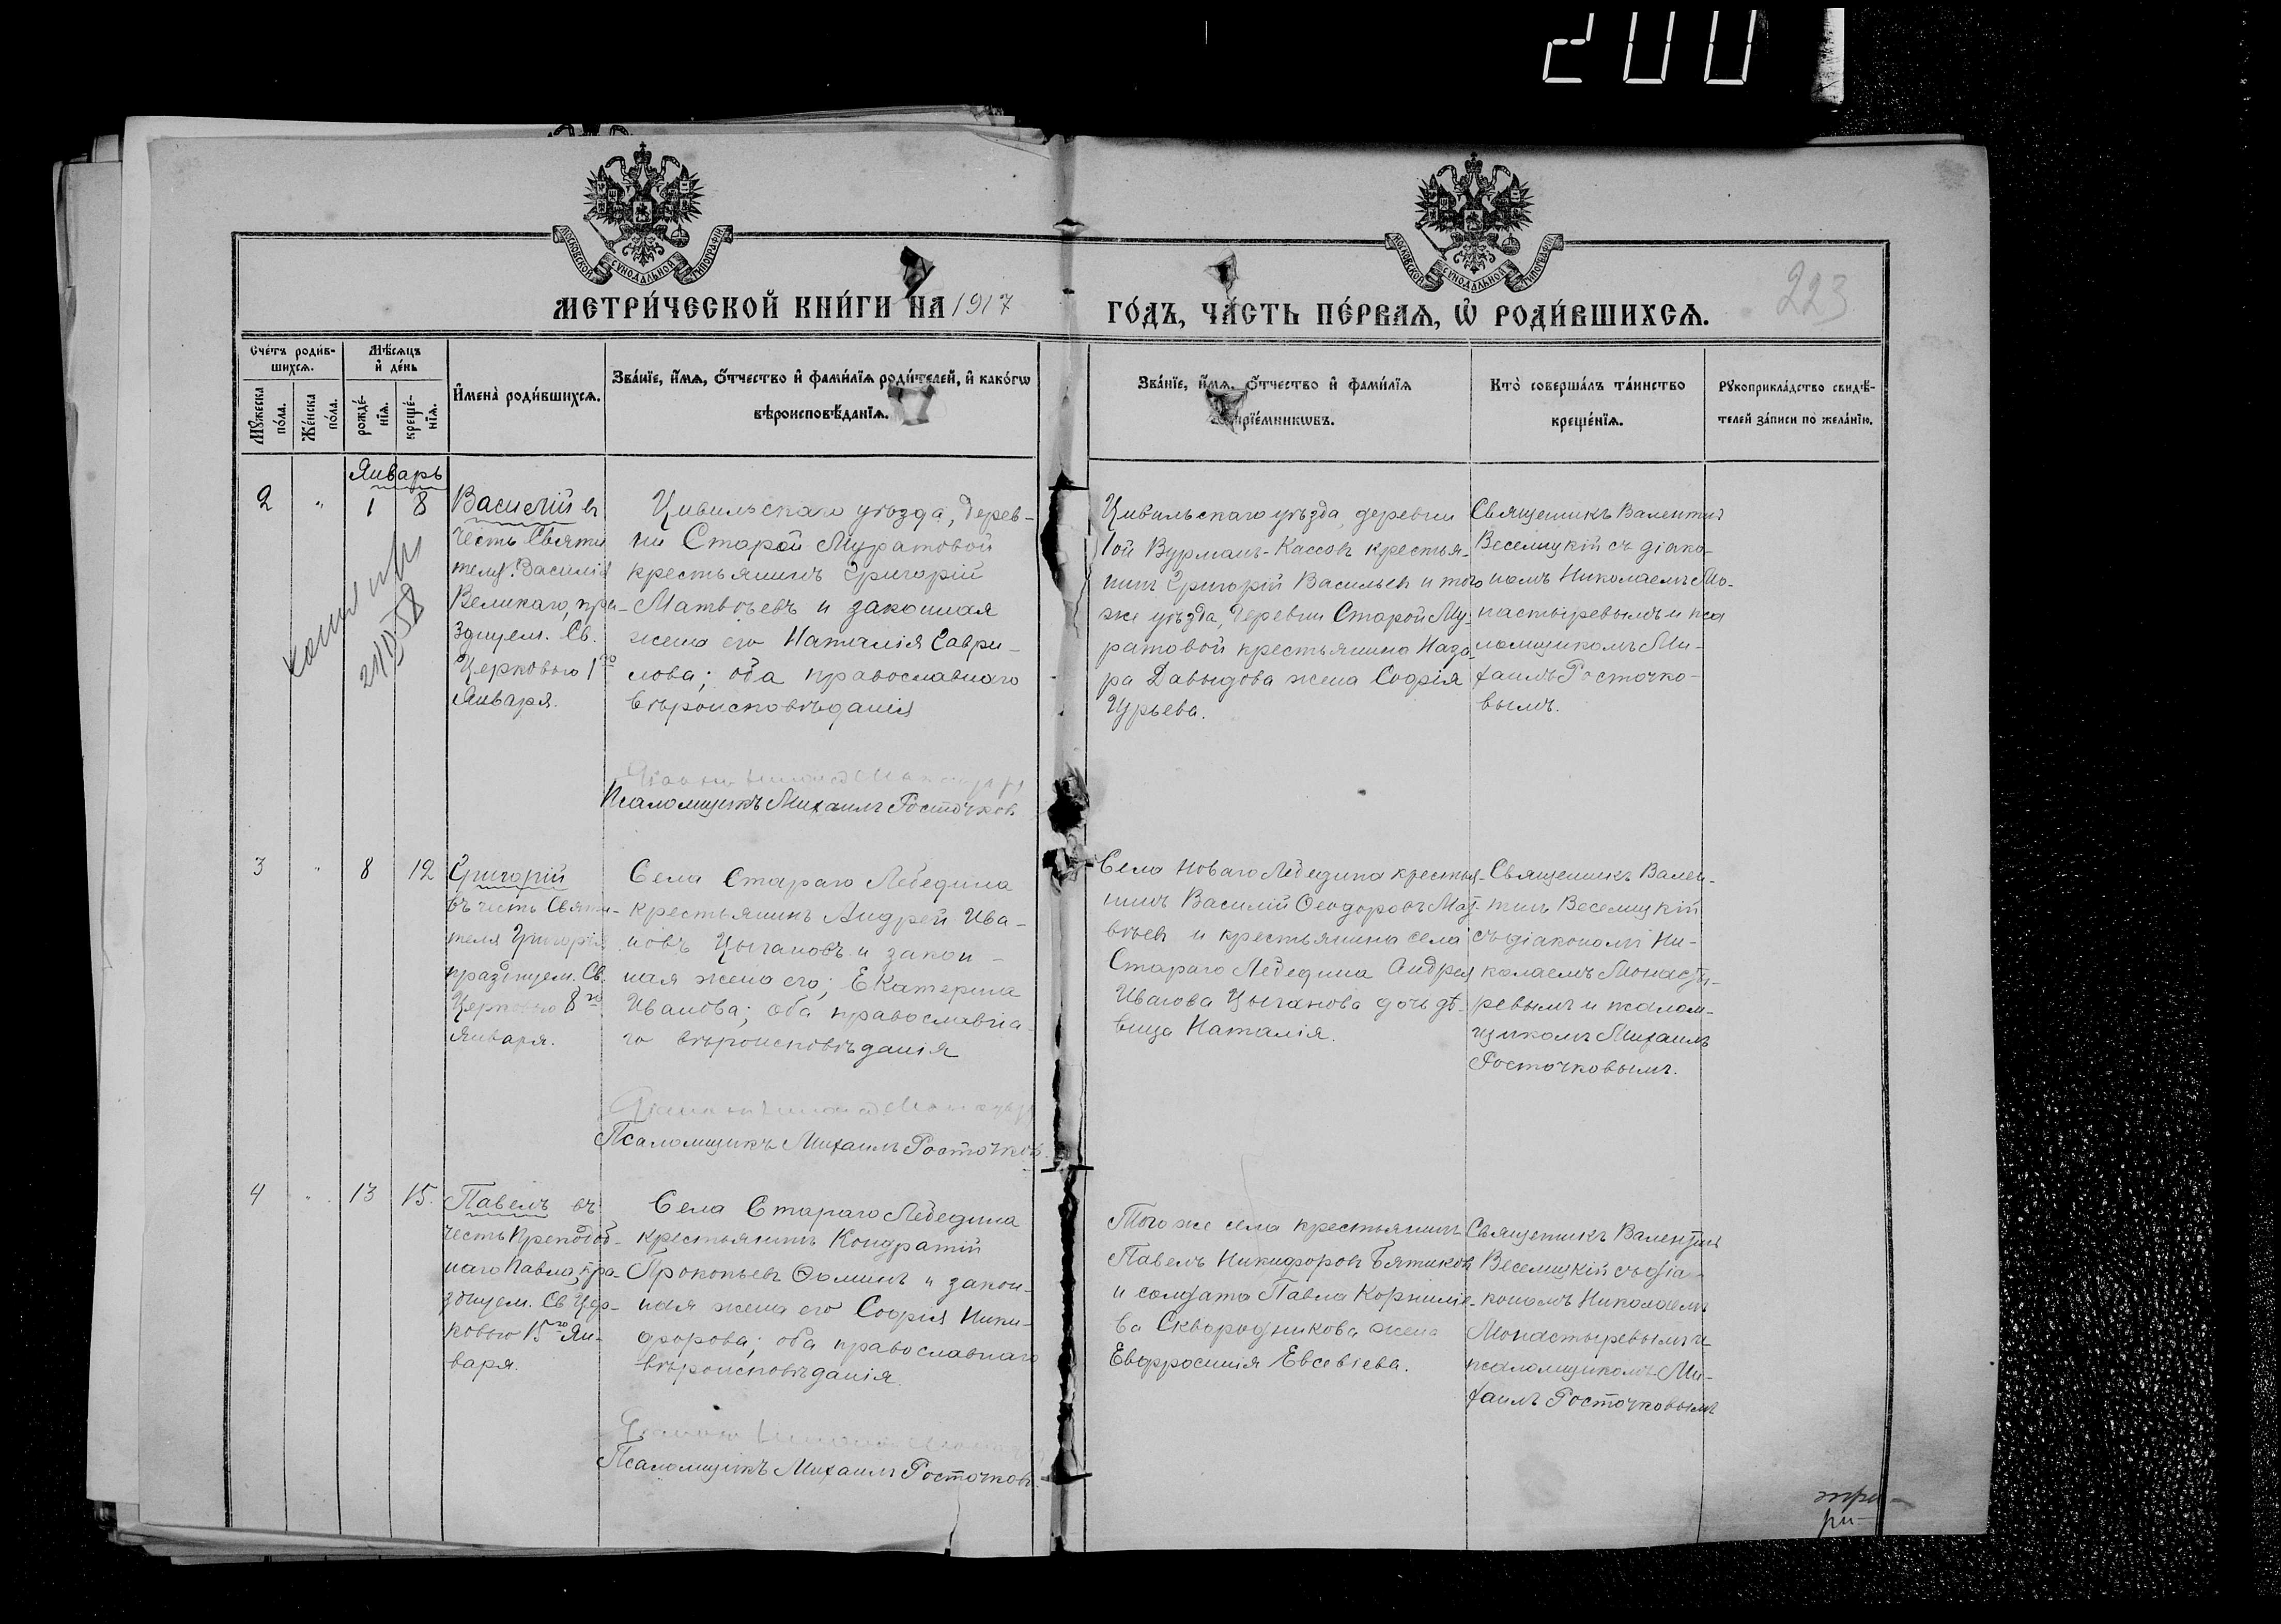 200
МОСКОВСКОЙ СѴНОДАЛЬНОЙ ТИПОГРАФІИ
МОСКОВСКОЙ СѴНОДАЛЬНОЙ ТИПОГРАФІИ
МЕТРИ́ЧЕСКОЙ КНИ́ГИ НА 1917
ГО́ДЪ, ЧА́СТЬ ПЕ́РВАѦ, Ѡ҆ РОДИ́ВШИХСѦ.
223
Сче́тъ роди́в-
шихсѧ.
Мѣ́сѧцъ
и҆ де́нь
Мꙋ́жеска
по́ла.
Же́нска
по́ла.
рожде́-
нїѧ.
креще́-
нїѧ.
И҆мена̀ роди́вшихсѧ.
Зва́нїе, и҆́мѧ, ѻ҆́тчество и҆ фами́лїѧ роди́телей, и҆ како́гѡ
вѣроисповѣ́данїѧ.
Зва́нїе, и҆́мѧ, ѻ҆́тчество и҆ фами́лїѧ
прїе́мникѡвъ.
Кто̀ соверша́лъ та́инство
креще́нїѧ.
Рꙋкоприкла́дство свидѣ́-
телей за́писи по жела́нїю.
Январь
2 " 1 8
Василій въ
честь Святи
теля Василія
Великаго, пра-
зднуем. Св.
Церковью 1го
Января.
Цивильскаго уѣзда, дерев-
ни Старой Муратовой
крестьянинъ Григорій
Матвѣевъ и законная
жена его Наталія Гаври-
лова; оба православнаго
вѣроисповѣданія
Псаломщикъ Михаилъ Росточковъ
Цивильскаго уѣзда, деревни
1ой Вурманъ-Кассовъ крестья-
нинъ Григорій Васильевъ и того
же уѣзда, деревни Старой Му-
ратовой крестьянина Наза-
ра Давыдова жена Софія
Гурьева.
Священникъ Валентинъ
Веселицкій съ діако-
номъ Николаемъ Мо-
настыревымъ и пса
ломщикомъ Ми-
хаилъ Росточко-
вымъ.
3 " 8 12
Григорій
въ честь Святи-
теля Григорія
празднуем. Св.
Церковью 8го
Января.
Села Стараго Лебедина
крестьянинъ Андрей Ива-
новъ Цыгановъ и закон-
ная жена его; Екатерина
Иванова; оба православна-
го вѣроисповѣданія
Псаломщикъ Михаилъ Росточковъ.
Села Новаго Лебедина крестья-
нинъ Василій Ѳеодоровъ Мат-
вѣевъ и крестьянина села
Стараго Лебедина Андрея
Иванова Цыганова дочь дѣ-
вица Наталія.
Священникъ Вален-
тинъ Веселицкій
съ діакономъ Ни-
колаемъ Монасты-
ревымъ и псалом-
щикомъ Михаилъ
Росточковымъ.
4 " 13 15.
Павелъ въ
честь Преподоб-
наго Павла, пра-
зднуем. Св Цер-
ковью 15го Ян-
варя.
Села Стараго Лебедина
крестьянинъ Кондратій
Прокопьевъ Ѳоминъ и закон-
ная жена его Софія Ники-
форова; оба православнаго
вѣроисповѣданія.
Псаломщикъ Михаилъ Росточковъ.
Того же села крестьянинъ
Павелъ Никифоровъ Бятиковъ
и солдата Павла Корниліе-
ва Сквородникова жена
Евфросинія Евсевіева.
Священникъ Валентинъ
Веселицкій съ діа-
кономъ Николаемъ
Монастыревымъ и
псаломщикомъ Ми-
хаилъ Росточковымъ